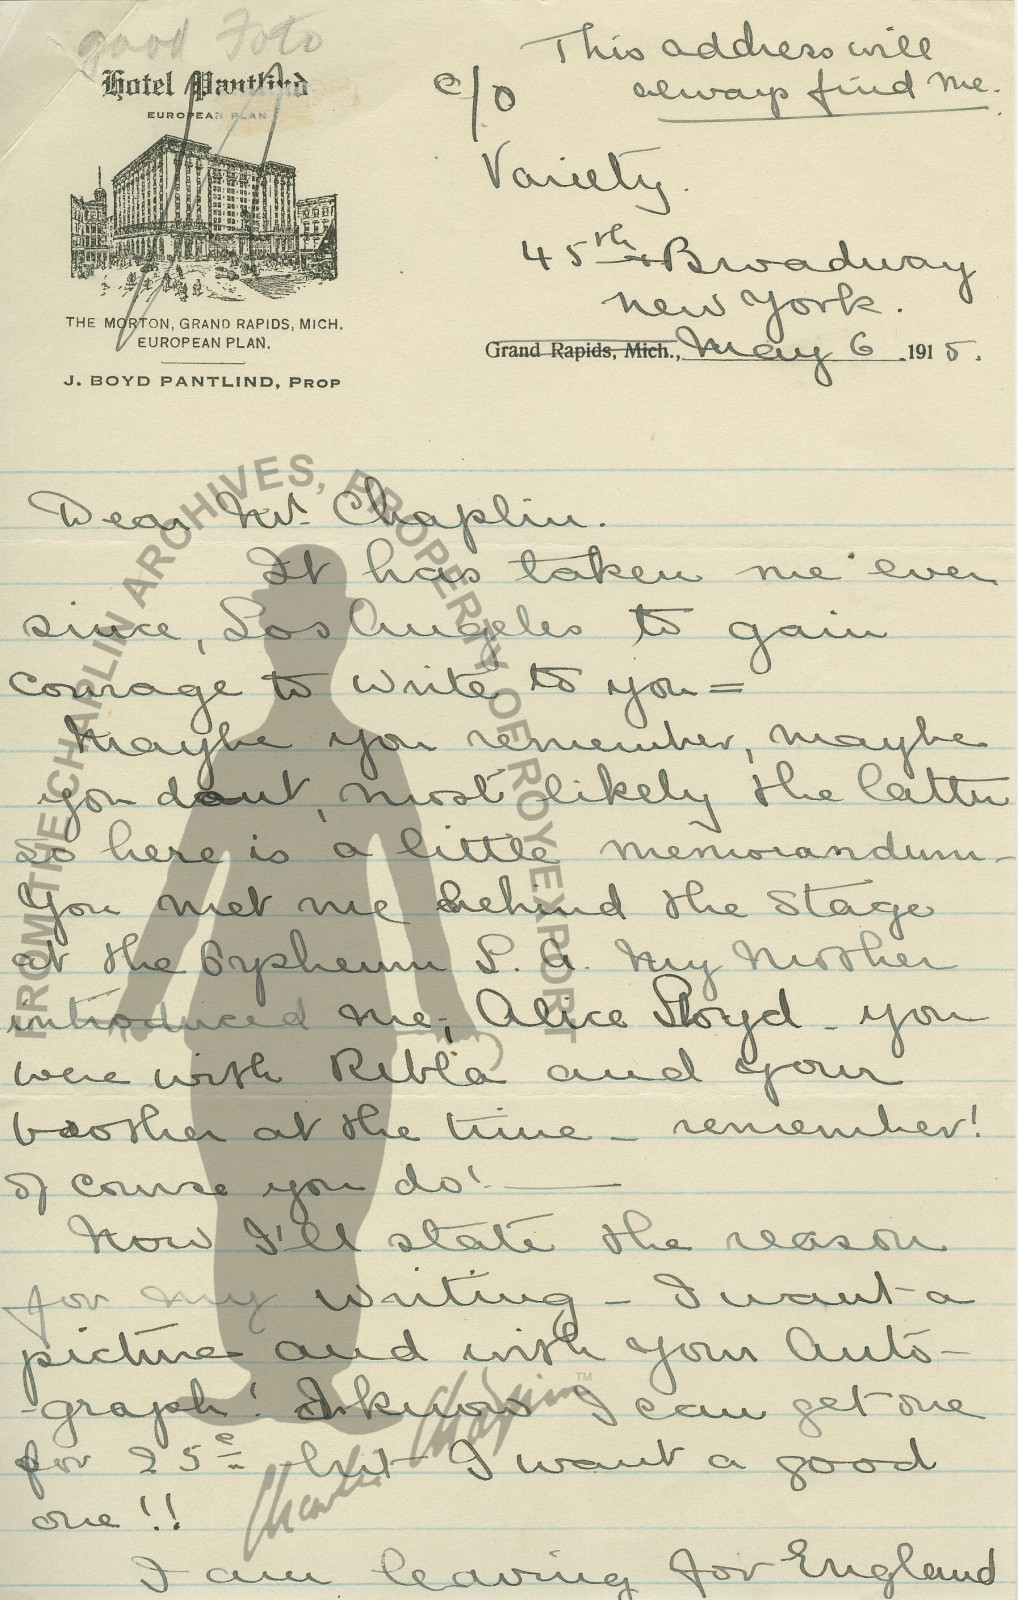 good Foto
Hotel Pantlind
EUROPEAN PLAN
THE MORTON, GRAND RAPIDS, MICH.
EUROPEAN PLAN.
J. BOYD PANTLIND, PROP
This address will
always find me.
c/o
Variety.
45th & Broadway
New York.
Grand Rapids, Mich., May 6 1915.
Dear Mr. Chaplin.
It has taken me ever
since, Los Angeles to gain
courage to write to you =
Maybe you remember, maybe
you dont, most likely the latter
so here is a little memorandum -
You met me behind the stage
at the Orpheum L. A. My Mother
introduced me, Alice Lloyd - you
were with Ritla and your
brother at the time - remember!
of course you do! -
Now I'll state the reason
for my writing - I want a
picture and with your Auto-
-graph! I know I can get one
for 25c but I want a good
one!!
I am leaving for England
FROM THE CHAPLIN ARCHIVES, PROPERTY OF ROY EXPORT
Charlie Chaplin TM